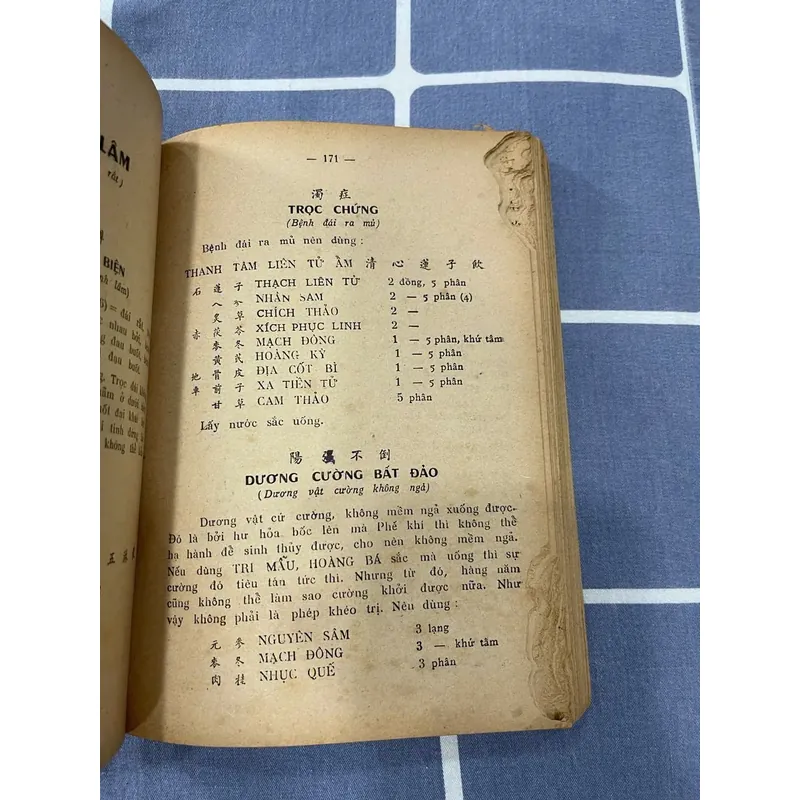 LÂM
rắt)
BIỆN
nh lâm)
— 171 —
濁 症
TRỌC CHỨNG
(Bệnh đái ra mủ)
Bệnh đái ra mủ nên dùng :
THANH TÂM LIÊN TỬ ẨM 清 心 蓮 子 飲
石 蓮 子 THẠCH LIÊN TỬ 2 đồng, 5 phân
人 參 NHÂN SÂM 2 — 5 phân (4)
炙 草 CHÍCH THẢO 2 —
赤 茯 苓 XÍCH PHỤC LINH 2 —
麥 冬 MẠCH ĐÔNG 1 — 5 phân, khứ tâm
黃 芪 HOÀNG KỲ 1 — 5 phân
地 骨 皮 ĐỊA CỐT BÌ 1 — 5 phân
車 前 子 XA TIỀN TỬ 1 — 5 phân
甘 草 CAM THẢO 5 phân
Lấy nước sắc uống.
陽 強 不 倒
DƯƠNG CƯỜNG BẤT ĐẢO
(Dương vật cường không ngả)
Dương vật cứ cường, không mềm ngả xuống được.
Đó là bởi hư hỏa bốc lên mà Phế khí thì không thể
hạ hành để sinh thủy được, cho nên không mềm ngả.
Nếu dùng TRI MẪU, HOÀNG BÁ sắc mà uống thì sự
cường đó tiêu tán tức thì. Nhưng từ đó, hàng năm
cũng không thể làm sao cường khởi được nữa. Như
vậy không phải là phép khéo trị. Nên dùng :
元 參 NGUYÊN SÂM 3 lạng
麥 冬 MẠCH ĐÔNG 3 — khứ tâm
肉 桂 NHỤC QUẾ 3 phân